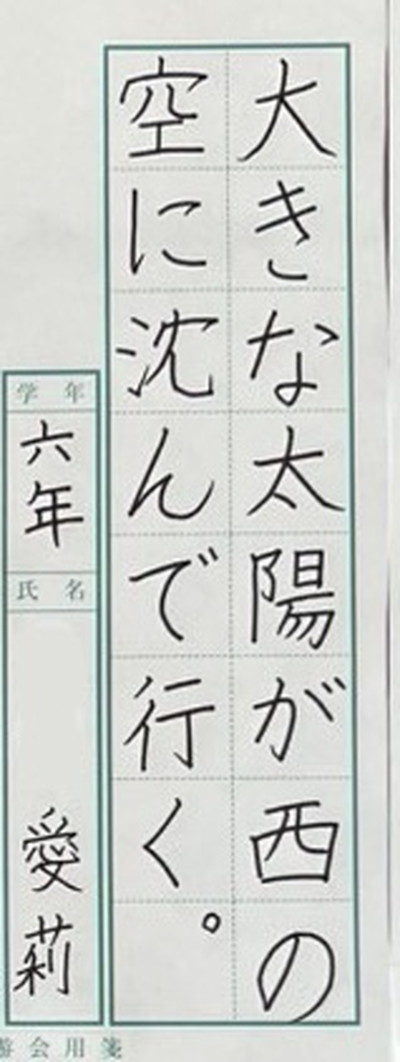 大きな太陽が西の
空に沈んで行く。
学年
六年
氏名
愛莉
会用箋